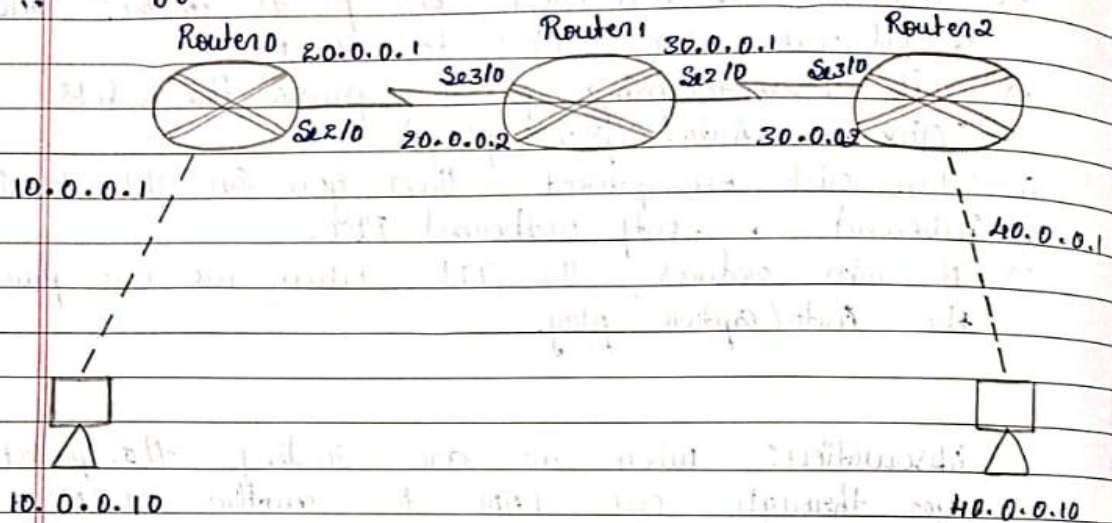 Router0 20.0.0.1 Router1 30.0.0.1 Router2
Se3/0 Se2/0 Se3/0
Se2/0 20.0.0.2 30.0.0.2
10.0.0.1
40.0.0.1
10.0.0.10 40.0.0.10